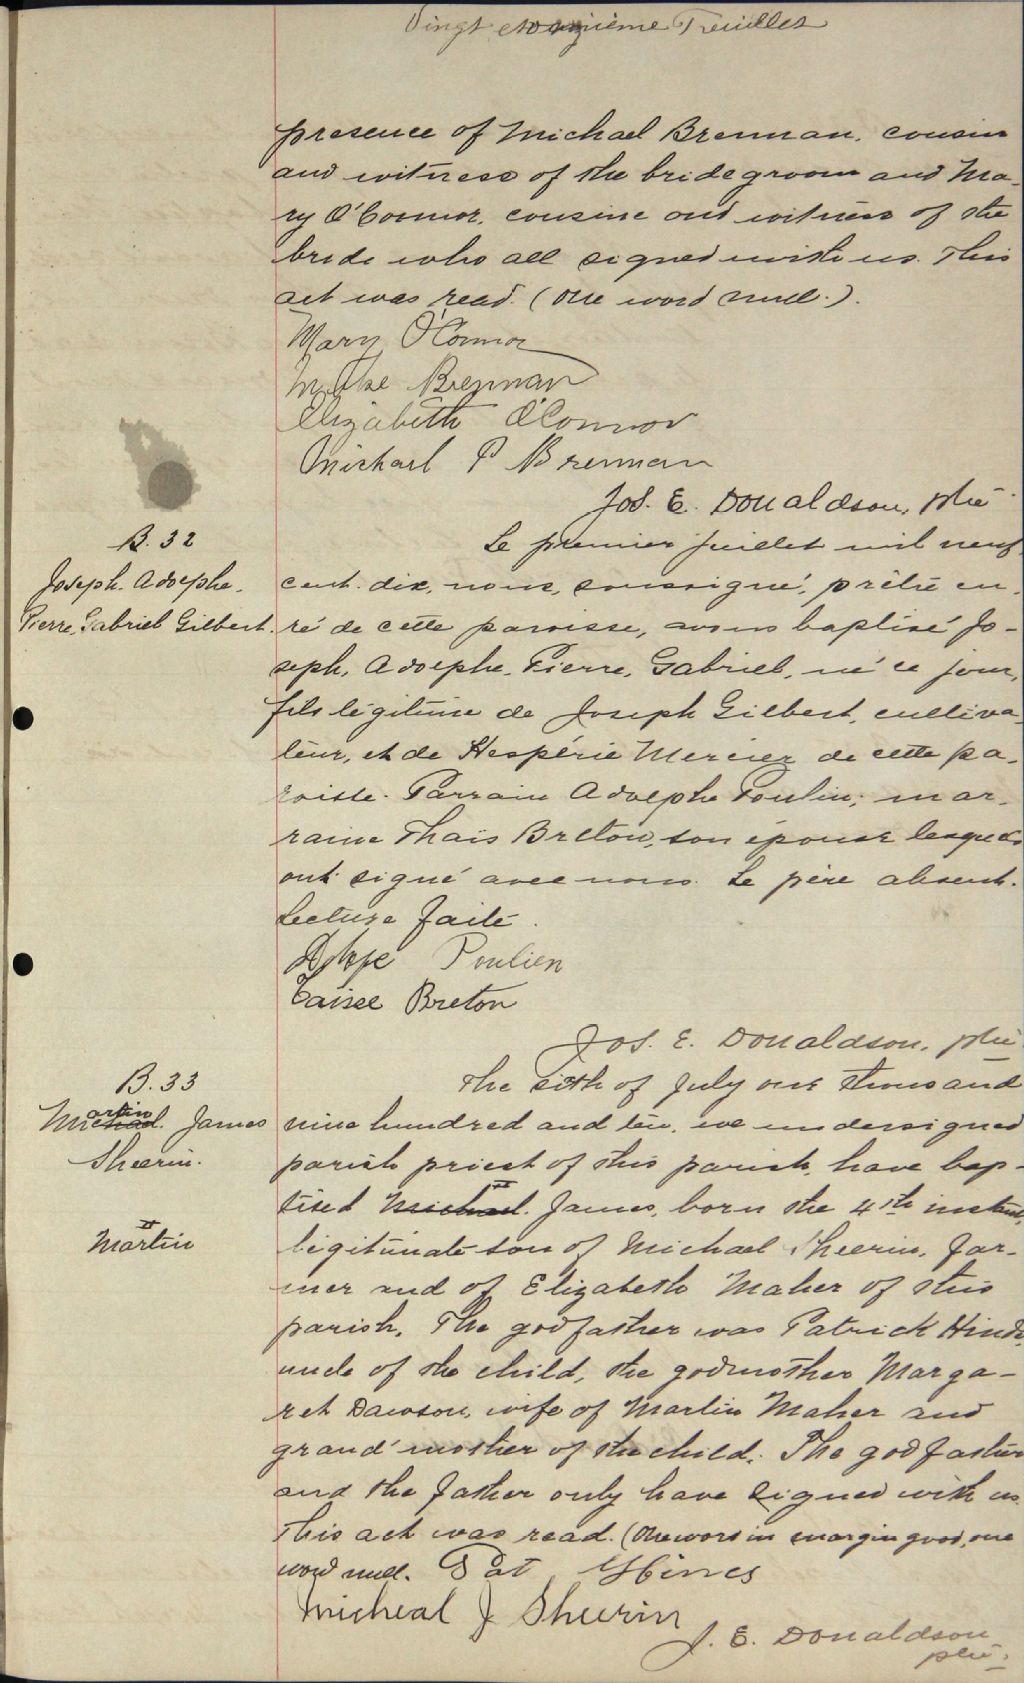 Vingt et onzième Feuillet
presence of Michael Brennan, cousin
and witness of the bridegroom and Ma-
ry O'Connor, cousine and witness of the
bride who all signed with us. This
act was read. (One word null.).
Mary O'Connor
Mike Brennan
Elizabeth O'Connor
Michael P Brennan
Jos. E. Donaldson, ptre
B. 32
Joseph. Adolphe.
Pierre, Gabriel Gilbert.
Le premier juillet mil neuf
cent dix, nous, soussigné, prêtre cu-
ré de cette paroisse, avons baptisé Jo-
seph, Adolphe, Pierre, Gabriel, né ce jour,
fils légitime de Joseph Gilbert, cultiva-
teur, et de Hespérie Mercier de cette pa-
roisse. Parrain Adolphe Poulin; mar-
raine Thaïs Breton, son épouse lesquels
ont signé avec nous. Le père absent.
Lecture faite.
Poulien
Taisee Breton
Jos. E. Donaldson, ptre
B. 33
Martin Michael. James
Sheerin.
The sixth of July one thousand
nine hundred and ten, we undersigned
parish priest of this parish, have bap-
tised Michael. James, born the 4th instant,
Martin
legitimate son of Michael Sheerin, far-
mer and of Elizabeth Maher of this
parish. The godfather was Patrick Hinds,
uncle of the child, the godmother Marga-
ret Dawson, wife of Martin Maher and
grand'mother of the child. The godfather
and the father only have signed with us.
This act was read. (One word in margin good, one
word null. Pat Hines
Micheal J Sheerin
J. E. Donaldson
ptre.